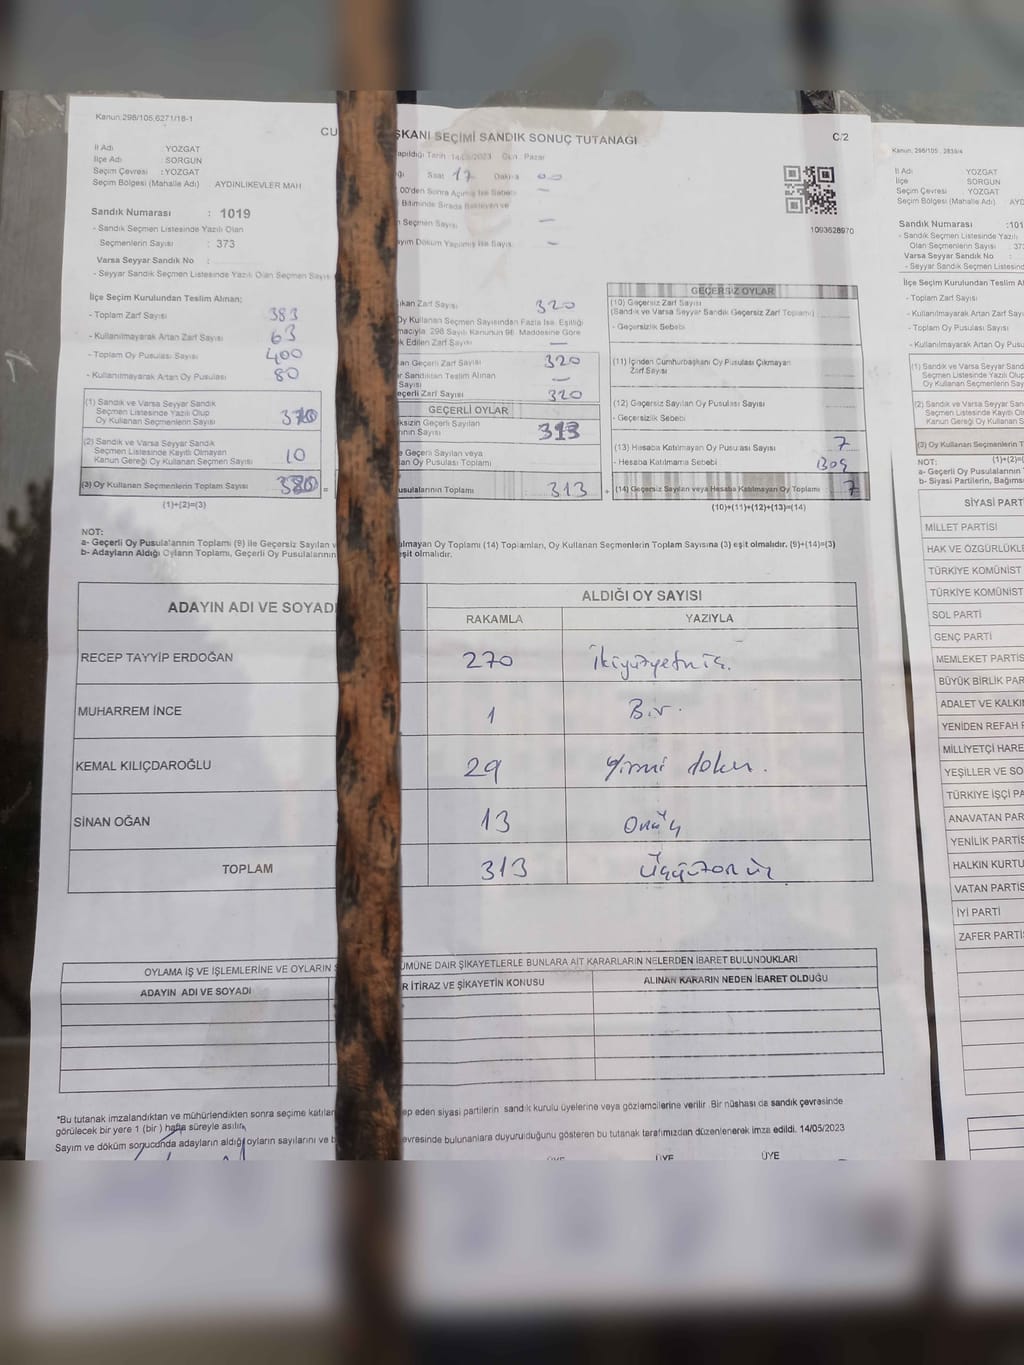 Kanun:298/105,6271/18-1
CU ŞKANI SEÇİMİ SANDIK SONUÇ TUTANAĞI
C/2
İl Adı : YOZGAT
İlçe Adı : SORGUN
Seçim Çevresi : YOZGAT
Seçim Bölgesi (Mahalle Adı) AYDINLIKEVLER MAH
Sandık Numarası : 1019
- Sandık Seçmen Listesinde Yazılı Olan
Seçmenlerin Sayısı : 373
Varsa Seyyar Sandık No :
- Seyyar Sandık Seçmen Listesinde Yazılı Olan Seçmen Sayıs
apıldığı Tarih 14/05/2023 Gün: Pazar
Saat 17 Dakika 00
00'den Sonra Açılmış İse Sebebi —
Bitiminde Sırada Bekleyen ve
n Seçmen Sayısı —
ayım Döküm Yapılmış İse Sayısı —
1093628970
İlçe Seçim Kurulundan Teslim Alınan;
- Toplam Zarf Sayısı 383
- Kullanılmayarak Artan Zarf Sayısı 63
- Toplam Oy Pusulası Sayısı 400
- Kullanılmayarak Artan Oy Pusulası 80
(1) Sandık ve Varsa Seyyar Sandık
Seçmen Listesinde Yazılı Olup
Oy Kullanan Seçmenlerin Sayısı
(2) Sandık ve Varsa Seyyar Sandık
Seçmen Listesinde Kayıtlı Olmayan
Kanun Gereği Oy Kullanan Seçmen Sayısı 10
(3) Oy Kullanan Seçmenlerin Toplam Sayısı =
(1)+(2)=(3)
ıkan Zarf Sayısı 320
Oy Kullanan Seçmen Sayısından Fazla İse, Eşitliği
macıyla 298 Sayılı Kanunun 98. Maddesine Göre
k Edilen Zarf Sayısı —
an Geçerli Zarf Sayısı 320
r Sandıktan Teslim Alınan
Sayısı —
eçerli Zarf Sayısı 320
GEÇERLİ OYLAR
ksizin Geçerli Sayılan
nın Sayısı 313
e Geçerli Sayılan veya
an Oy Pusulası Toplamı
usulalarının Toplamı 313 +
GEÇERSİZ OYLAR
(10) Geçersiz Zarf Sayısı
(Sandık ve Varsa Seyyar Sandık Geçersiz Zarf Toplamı)
- Geçersizlik Sebebi
(11) İçinden Cumhurbaşkanı Oy Pusulası Çıkmayan
Zarf Sayısı
(12) Geçersiz Sayılan Oy Pusulası Sayısı
- Geçersizlik Sebebi
(13) Hesaba Katılmayan Oy Pusulası Sayısı 7
- Hesaba Katılmama Sebebi Boş
(14) Geçersiz Sayılan veya Hesaba Katılmayan Oy Toplamı 7
(10)+(11)+(12)+(13)=(14)
NOT:
a- Geçerli Oy Pusulalarının Toplamı (9) ile Geçersiz Sayılan v ılmayan Oy Toplamı (14) Toplamları, Oy Kullanan Seçmenlerin Toplam Sayısına (3) eşit olmalıdır. (9)+(14)=(3)
b- Adayların Aldığı Oyların Toplamı, Geçerli Oy Pusulalarının eşit olmalıdır.
ADAYIN ADI VE SOYADI ALDIĞI OY SAYISI
RAKAMLA YAZIYLA
RECEP TAYYİP ERDOĞAN 270 İkiyüzyetmiş.
MUHARREM İNCE 1 Bir.
KEMAL KILIÇDAROĞLU 29 Yirmi dokuz.
SİNAN OĞAN 13 Onüç
TOPLAM 313 Üçyüzonüç
OYLAMA İŞ VE İŞLEMLERİNE VE OYLARIN S ÜMÜNE DAİR ŞİKAYETLERLE BUNLARA AİT KARARLARIN NELERDEN İBARET BULUNDUKLARI
ADAYIN ADI VE SOYADI R İTİRAZ VE ŞİKAYETİN KONUSU ALINAN KARARIN NEDEN İBARET OLDUĞU
*Bu tutanak imzalandıktan ve mühürlendikten sonra seçime katılan ep eden siyasi partilerin sandık kurulu üyelerine veya gözlemcilerine verilir .Bir nüshası da sandık çevresinde
görülecek bir yere 1 (bir ) hafta süreyle asılır.
Sayım ve döküm sonucunda adayların aldığı oyların sayılarını ve b evresinde bulunanlara duyurulduğunu gösteren bu tutanak tarafımızdan düzenlenerek imza edildi. 14/05/2023
ÜYE ÜYE ÜYE
Kanun: 298/105 , 2839/4
İl Adı YOZGAT
İlçe SORGUN
Seçim Çevresi YOZGAT
Seçim Bölgesi (Mahalle Adı) AYD
Sandık Numarası :101
- Sandık Seçmen Listesinde Yazılı
Olan Seçmenlerin Sayısı : 373
Varsa Seyyar Sandık No :
- Seyyar Sandık Seçmen Listesind
İlçe Seçim Kurulundan Teslim Alın
- Toplam Zarf Sayısı
- Kullanılmayarak Artan Zarf Sayıs
- Toplam Oy Pusulası Sayısı
- Kullanılmayarak Artan Oy Pusu
(1) Sandık ve Varsa Seyyar Sand
Seçmen Listesinde Yazılı Olup
Oy Kullanan Seçmenlerin Sayı
(2) Sandık ve Varsa Seyyar Sand
Seçmen Listesinde Kayıtlı Olm
Kanun Gereği Oy Kullanan Se
(3) Oy Kullanan Seçmenlerin T
NOT: (1)+(2)=(
a- Geçerli Oy Pusulalarının Topla
b- Siyasi Partilerin, Bağımsı
SİYASİ PART
MİLLET PARTİSİ
HAK VE ÖZGÜRLÜKLE
TÜRKİYE KOMÜNİST
TÜRKİYE KOMÜNİST
SOL PARTİ
GENÇ PARTİ
MEMLEKET PARTİS
BÜYÜK BİRLİK PAR
ADALET VE KALKI
YENİDEN REFAH P
MİLLİYETÇİ HARE
YEŞİLLER VE SO
TÜRKİYE İŞÇİ PA
ANAVATAN PAR
YENİLİK PARTİS
HALKIN KURTU
VATAN PARTİS
İYİ PARTİ
ZAFER PARTİS